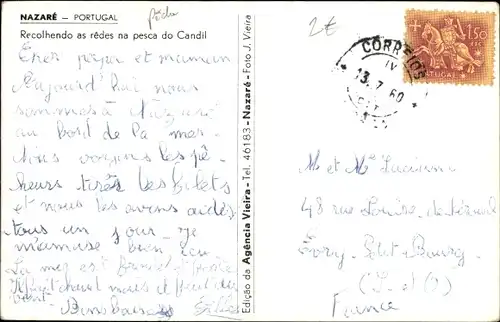 NAZARÉ – PORTUGAL
Recolhendo as rêdes na pesca do Candil
Cher papa et maman
Aujourd'hui nous
sommes à Nazaré
au bord de la mer
Nous voyons les pê-
cheurs tirer les filets
et nous les avons aidés
tous un jour Je
m'amuse bien ici
La mer est
mais il fait du
vent
Edição da Agência Vieira - Tel. 46183 - Nazaré - Foto J. Vieira
2€
CORREIOS
13.7.60
1$50
PORTUGAL
M et Me Lucienne
48 rue Louise de
Evry Petit Bourg
(S et O)
France